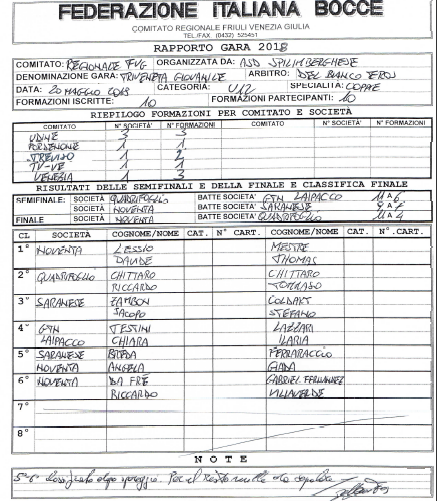 FEDERAZIONE ITALIANA BOCCE
COMITATO REGIONALE FRIULI VENEZIA GIULIA
TEL./FAX. (0432) 525451
RAPPORTO GARA 2018
COMITATO: REGIONALE FVG ORGANIZZATA DA: ASD SPILIMBERGHESE
DENOMINAZIONE GARA: TRIVENETA GIOVANILE ARBITRO: DEL BIANCO
DATA: 20 MAGGIO 2018 CATEGORIA: U12 SPECIALITA: COPPIE
FORMAZIONI ISCRITTE: 10 FORMAZIONI PARTECIPANTI: 10
RIEPILOGO FORMAZIONI PER COMITATO E SOCIETÀ
COMITATO N° SOCIETA' N° FORMAZIONI COMITATO N° SOCIETA' N° FORMAZIONI
UDINE 3 3
PORDENONE 1 1
TREVISO 1 2
TV-VE 1 1
VENEZIA 1 3
RISULTATI DELLE SEMIFINALI E DELLA FINALE E CLASSIFICA FINALE
SEMIFINALE: SOCIETÀ QUADRIFOGLIO BATTE SOCIETA' GTN LAIPACCO 11 A 6
SOCIETÀ NOVENTA BATTE SOCIETA' SARANESE
FINALE SOCIETÀ NOVENTA BATTE SOCIETA' QUADRIFOGLIO 11 A
CL SOCIETÀ COGNOME/NOME CAT. N° CART. COGNOME/NOME CAT. N°.CART.
1° NOVENTA LESSIO MESTRE
DAVIDE THOMAS
2° QUADRIFOGLIO CHITTARO CHITTARO
RICCARDO TOMMASO
3° SARANESE ZAMBON COLDART
JACOPO STEFANO
4° GTN TESTINI LAZZARI
LAIPACCO CHIARA ILARIA
5° SARANESE BREDA FERRARACCIO
NOVENTA ANGELA GIADA
6° NOVENTA DA FRÈ GABRIEL FERNANDEZ
RICCARDO VILLAVERDE
7°
8°
NOTE
5° 6° dopo Per il resto nulla da segnalare